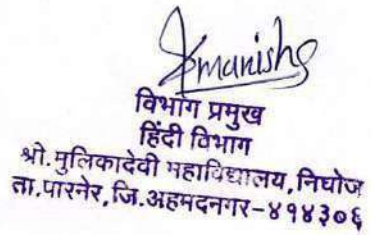 विभाग प्रमुख
हिंदी विभाग
श्री.मुलिकादेवी महाविद्यालय,निघोज
ता.पारनेर,जि.अहमदनगर-४१४३०६